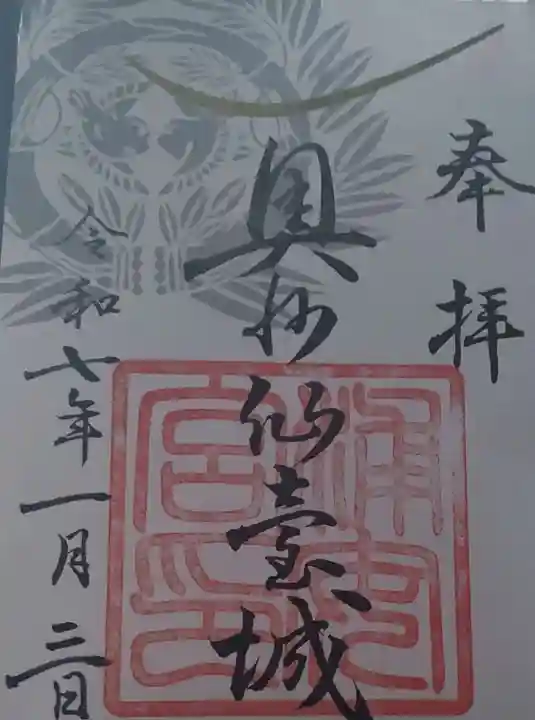 奉拝
奥州仙臺城
令和七年一月三日